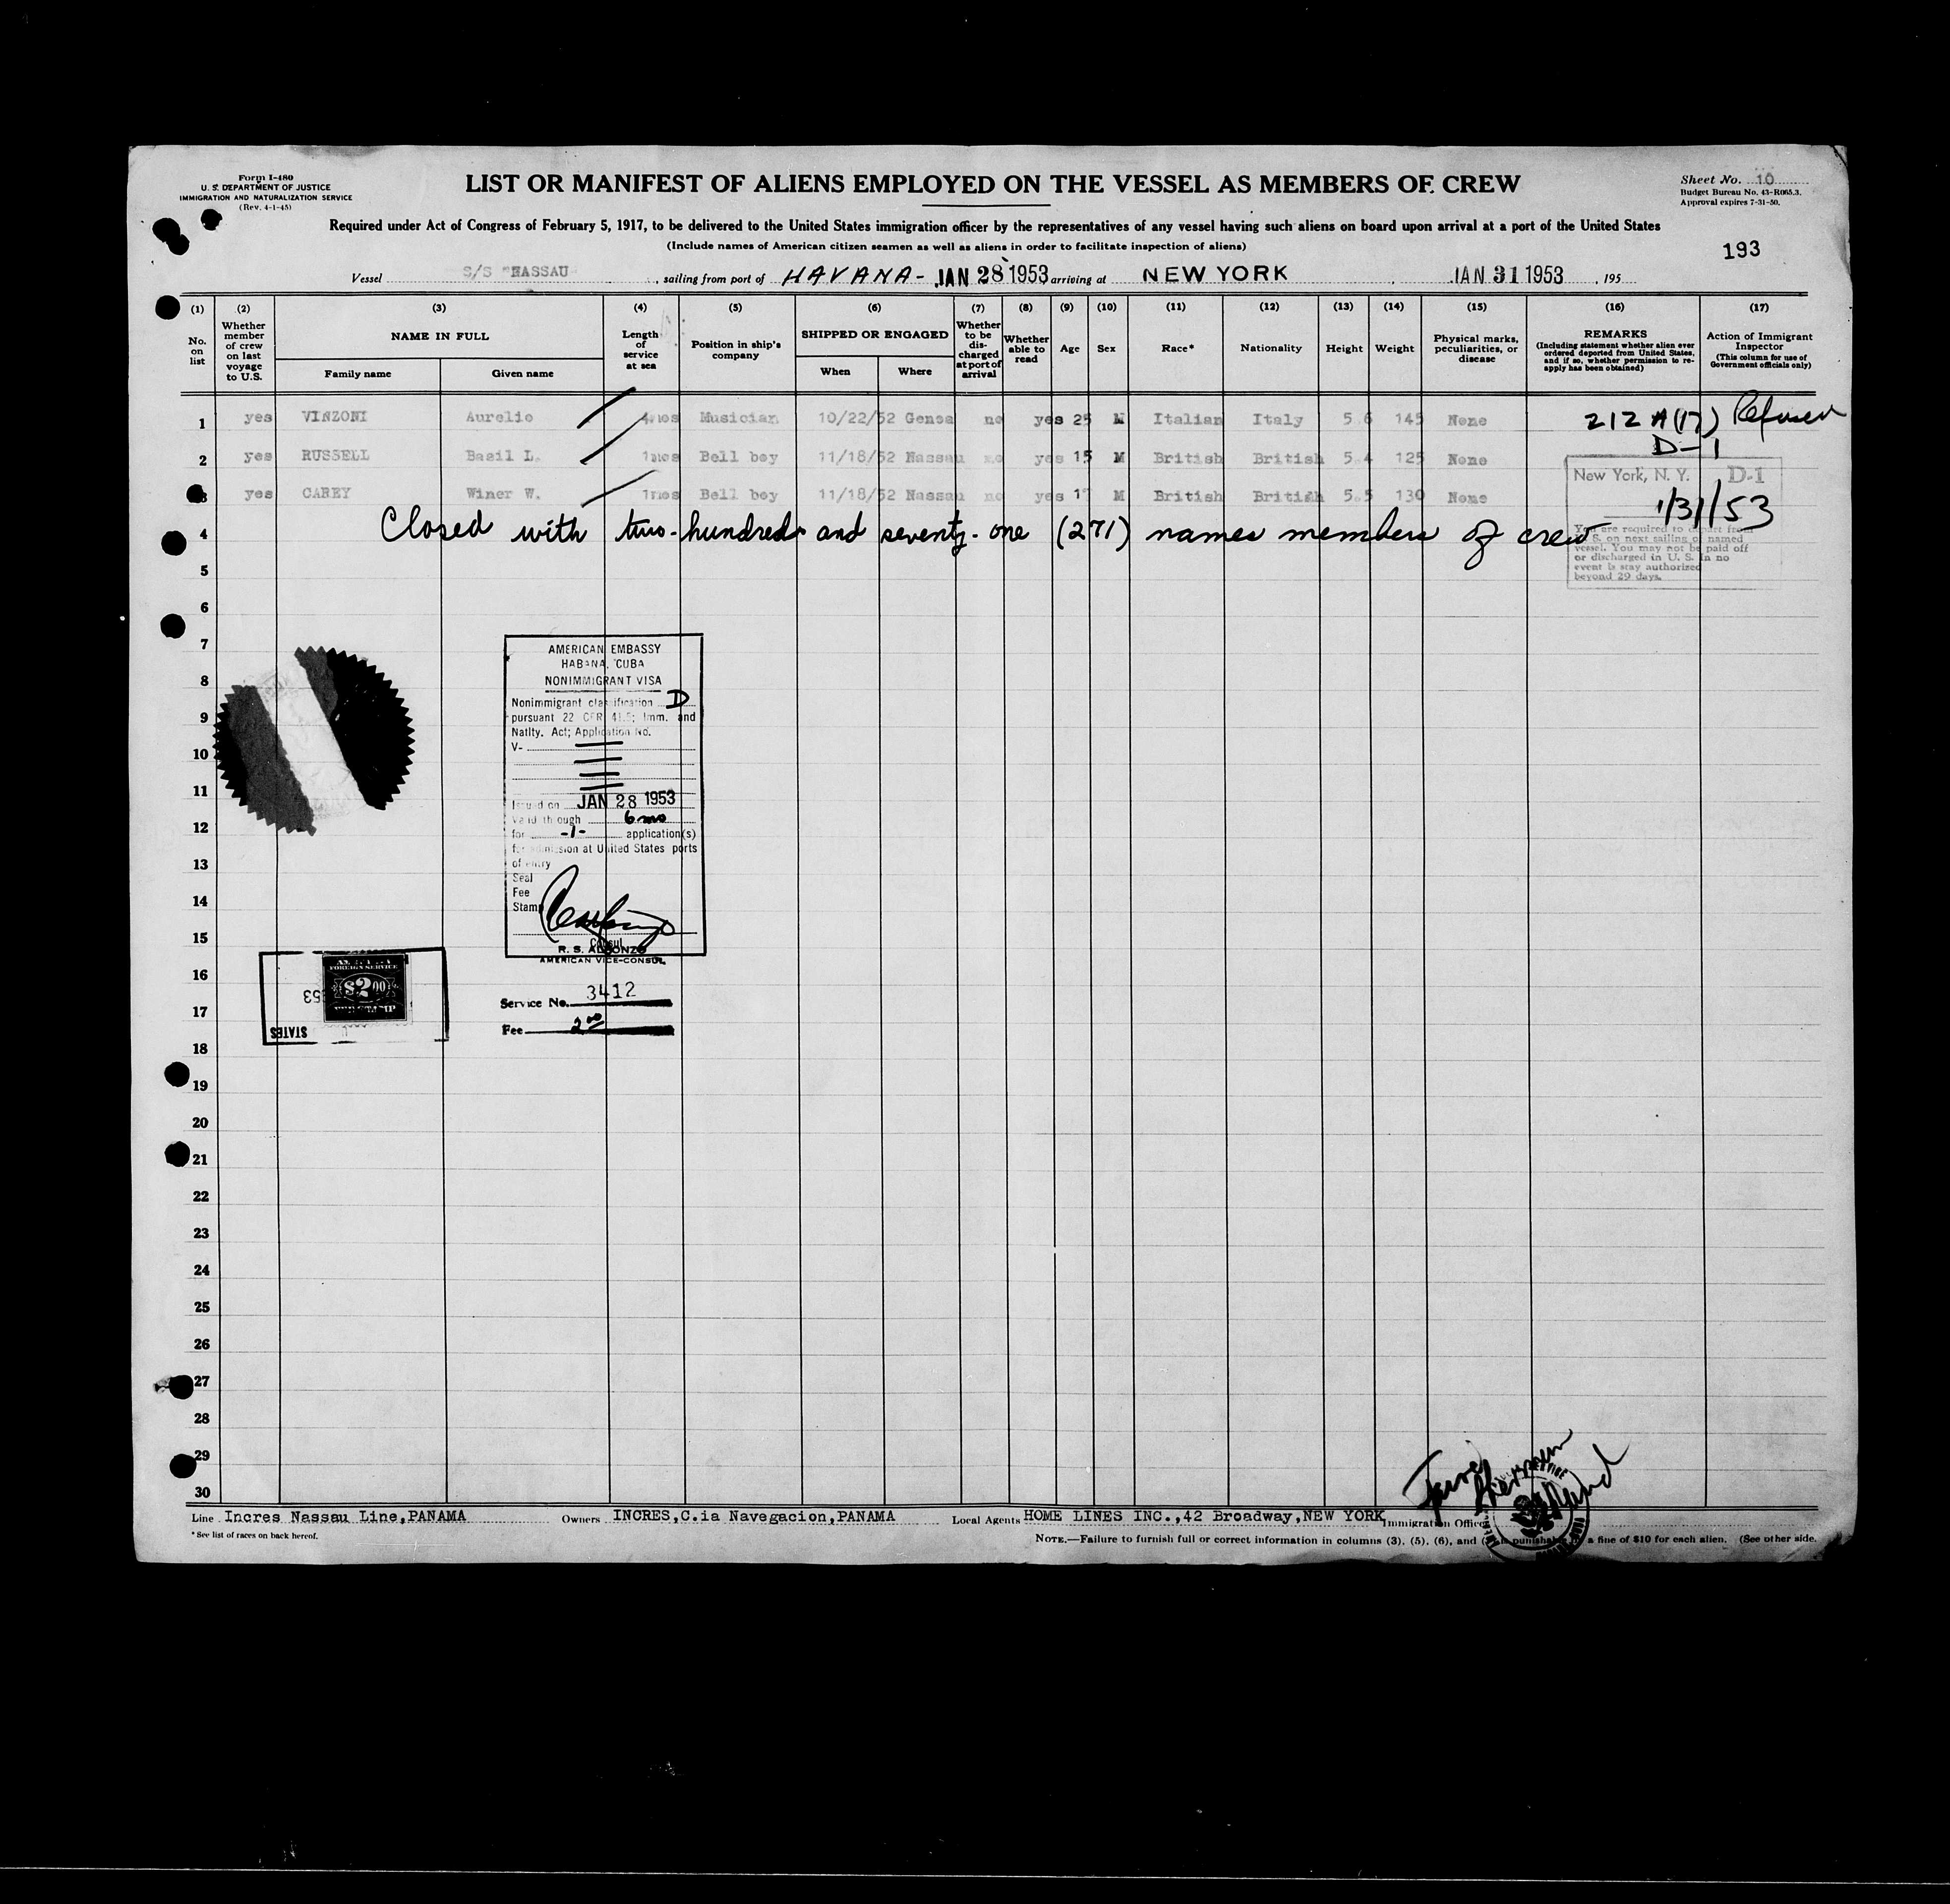 Form I-480
U. S. DEPARTMENT OF JUSTICE
IMMIGRATION AND NATURALIZATION SERVICE
(Rev. 4-1-45)
LIST OR MANIFEST OF ALIENS EMPLOYED ON THE VESSEL AS MEMBERS OF CREW
Sheet No. 10
Budget Bureau No. 43-R065.3.
Approval expires 7-31-50.
Required under Act of Congress of February 5, 1917, to be delivered to the United States immigration officer by the representatives of any vessel having such aliens on board upon arrival at a port of the United States
(Include names of American citizen seamen as well as aliens in order to facilitate inspection of aliens)
193
Vessel S/S "NASSAU" , sailing from port of HAVANA - JAN 28 1953 arriving at NEW YORK JAN 31 1953 , 195
(1) (2) (3) (4) (5) (6) (7) (8) (9) (10) (11) (12) (13) (14) (15) (16) (17)
No. on list
Whether member of crew on last voyage to U.S.
NAME IN FULL
Family name
Given name
Length of service at sea
Position in ship's company
SHIPPED OR ENGAGED
When
Where
Whether to be discharged at port of arrival
Whether able to read
Age
Sex
Race*
Nationality
Height
Weight
Physical marks, peculiarities, or disease
REMARKS
(Including statement whether alien ever ordered deported from United States, and if so, whether permission to reapply has been obtained)
Action of Immigrant Inspector
(This column for use of Government officials only)
1 yes VINZONI Aurelio 4mos Musician 10/22/52 Genoa no yes 25 M Italian Italy 5.6 145 None 212 A(17) Refused
D-1
2 yes RUSSELL Basil L. 1mos Bell boy 11/18/52 Nassau no yes 15 M British British 5.4 125 None
3 yes CAREY Winer W. 1mos Bell boy 11/18/52 Nassau no yes M British British 5.5 130 None
New York, N. Y. D-1
1/31/53
You are required to depart from
U. S. on next sailing of named
vessel. You may not be paid off
or discharged in U. S. In no
event is stay authorized
beyond 29 days.
4 Closed with two-hundreds and seventy-one (271) names members of crew
5
6
7
8
9
10
11
12
13
14
15
16
17
18
19
20
21
22
23
24
25
26
27
28
29
30
AMERICAN EMBASSY
HABANA, CUBA
NONIMMIGRANT VISA
Nonimmigrant classification D
pursuant 22 CFR 41.5; Imm. and
Natlty. Act; Application No.
V-
Issued on JAN 28 1953
Valid through 6 mo
for -1- application(s)
for admission at United States ports
of entry
Seal
Fee
Stamp
Consul
R. S. ALFONZO
AMERICAN VICE-CONSUL
Service No. 3412
Fee 2.00
FOREIGN SERVICE
$2.00
STATES
Line Incres Nassau Line,PANAMA
Owners INCRES,C.ia Navegacion,PANAMA
Local Agents HOME LINES INC.,42 Broadway,NEW YORK
Immigration Officer
* See list of races on back hereof.
NOTE.—Failure to furnish full or correct information in columns (3), (5), (6), and is punishable a fine of $10 for each alien. (See other side.